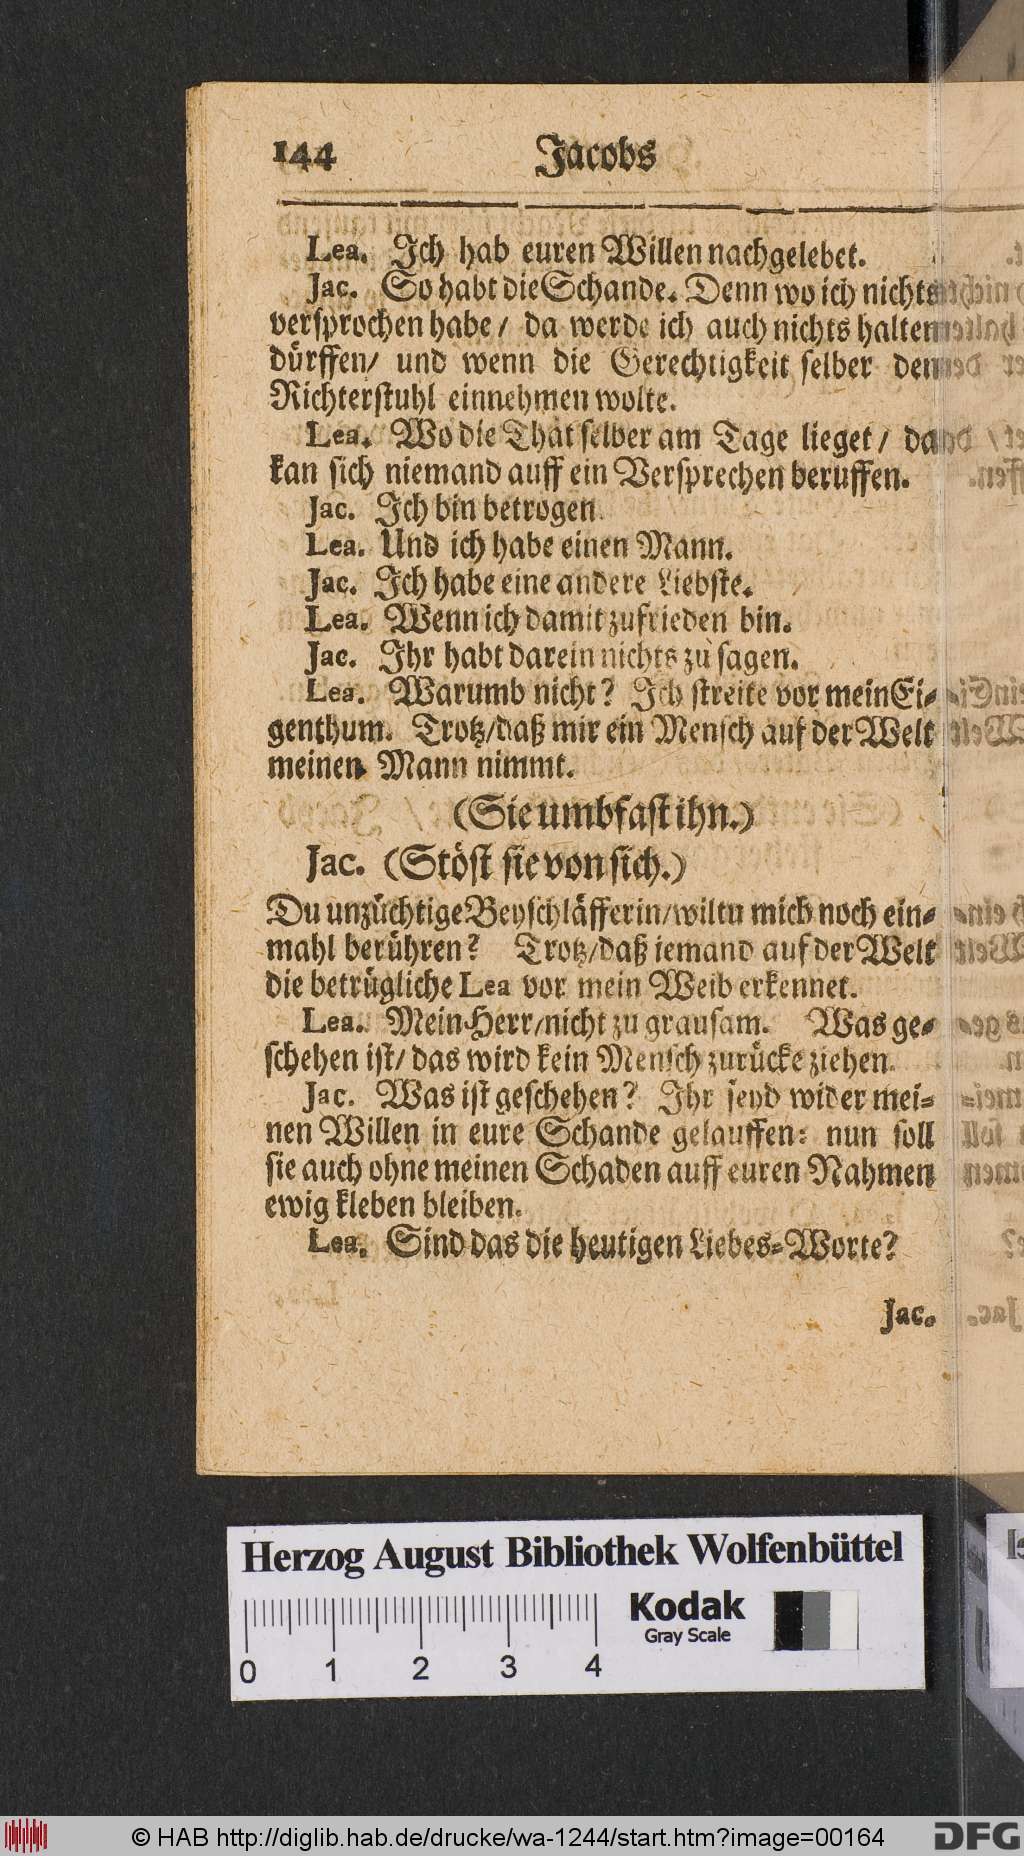 144 Jacobs
Lea. Ich hab euren Willen nachgelebet.
Jac. So habt die Schande. Denn wo ich nichts
versprochen habe / da werde ich auch nichts halten
dürffen / und wenn die Gerechtigkeit selber den
Richterstuhl einnehmen wolte.
Lea. Wo die That selber am Tage lieget / da
kan sich niemand auff ein Versprechen beruffen.
Jac. Ich bin betrogen.
Lea. Und ich habe einen Mann.
Jac. Ich habe eine andere Liebste.
Lea. Wenn ich damit zufrieden bin.
Jac. Ihr habt darein nichts zu sagen.
Lea. Warumb nicht? Ich streite vor mein Ei-
genthum. Trotz / daß mir ein Mensch auf der Welt
meinen Mann nimmt.
(Sie umbfast ihn.)
Jac. (Stöst sie von sich.)
Du unzüchtige Beyschläfferin / wiltu mich noch ein-
mahl berühren? Trotz / daß iemand auf der Welt
die betrügliche Lea vor mein Weib erkennet.
Lea. Mein Herr / nicht zu grausam. Was ge-
schehen ist / das wird kein Mensch zurücke ziehen.
Jac. Was ist geschehen? Ihr seyd wider mei-
nen Willen in eure Schande gelauffen: nun soll
sie auch ohne meinen Schaden auff euren Nahmen
ewig kleben bleiben.
Lea. Sind das die heutigen Liebes-Worte?
Jac.
Herzog August Bibliothek Wolfenbüttel
Kodak
Gray Scale
0 1 2 3 4
© HAB http://diglib.hab.de/drucke/wa-1244/start.htm?image=00164
DFG